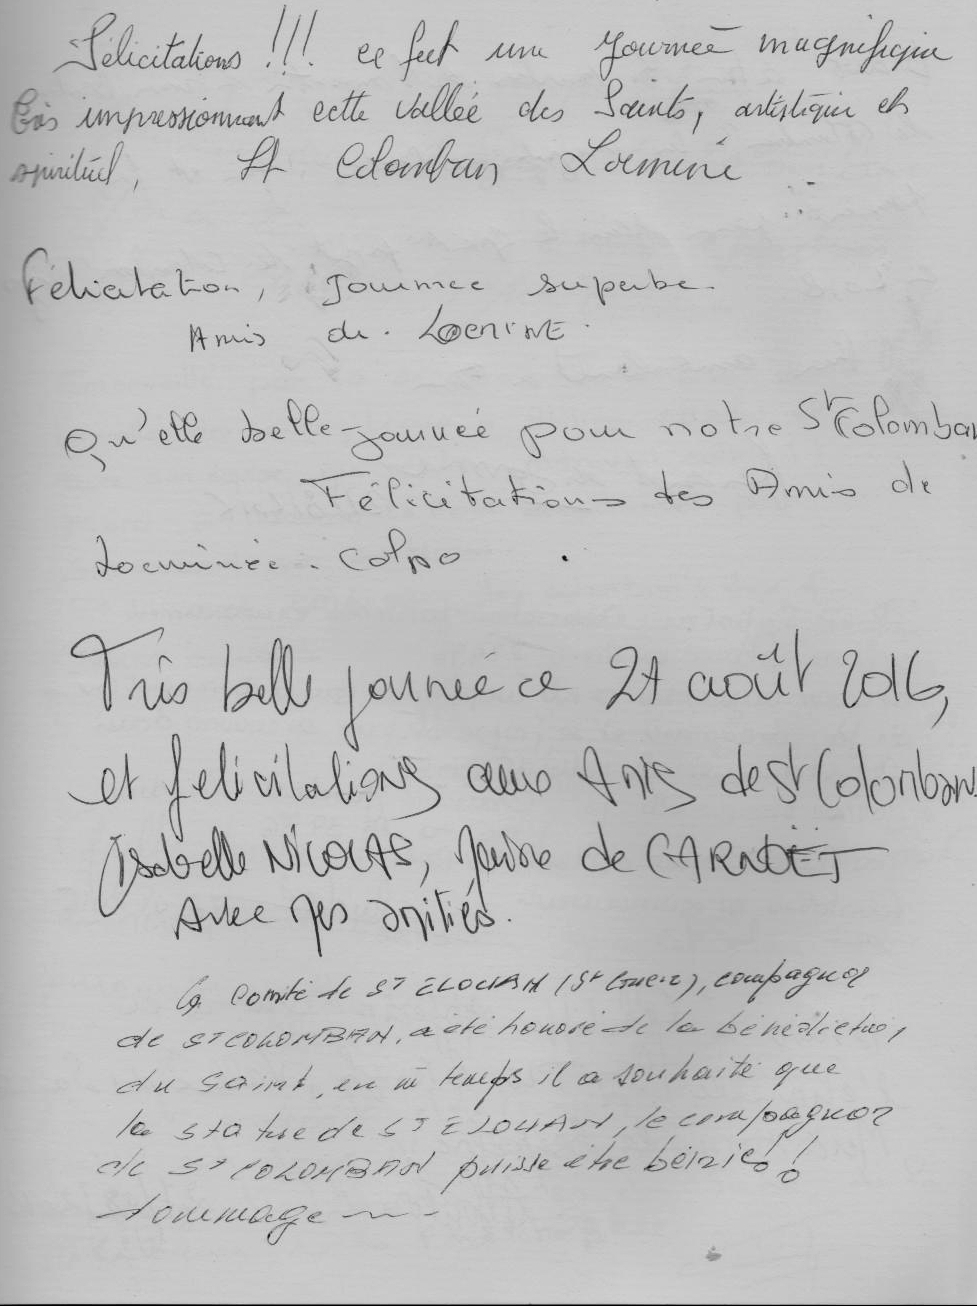 Félicitations !!! ce fut une journée magnifique
très impressionnant cette vallée des Saints, artistique et
spirituel, St Colomban Locminé
Félicitation, Journée superbe.
Amis de Locminé.
Qu'elle belle journée pour notre St Colomban
Félicitations des Amis de
Locminée. Colpo .
Très belle journée ce 21 août 2016,
et félicitations aux Amis de St Colomban
Isabelle NICOLAS, Maire de CARNOËT
Avec mes amitiés.
Le Comité de ST ÉLOUAN (St Guen), compagnon
de ST COLOMBAN, a été honoré de la bénédiction,
du Saint, en m temps il a souhaité que
la statue de ST ÉLOUAN, le compagnon
de ST COLOMBAN puisse être bénie !!
dommage ~ ~ -